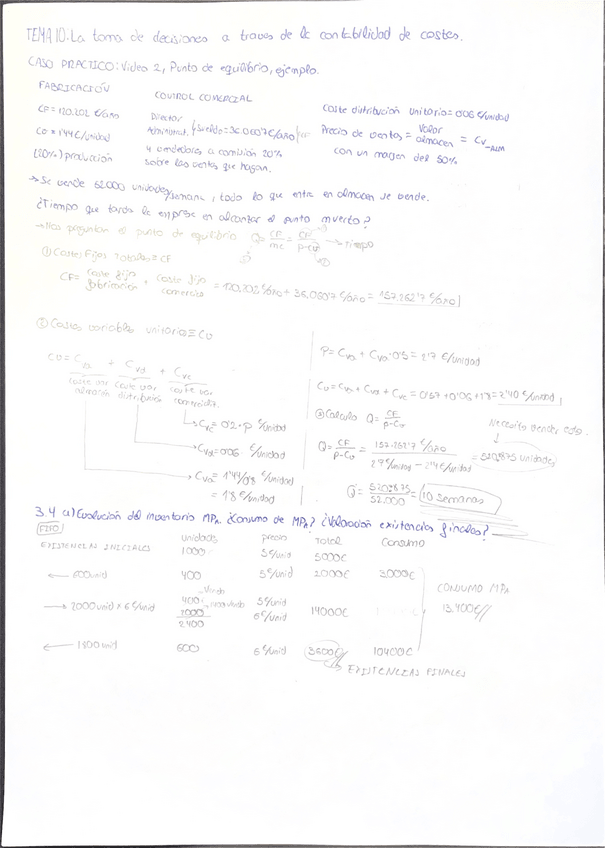 TEMA 10: La toma de decisiones a traves de la contabilidad de costes.
CASO PRACTICO: Video 2, Punto de equilibrio, ejemplo.
FABRICACIÓN
CF = 120.202 €/año
Cv = 1'44 €/unidad
(80%) producción
CONTROL COMERCIAL
Director
Administrat. Sueldo = 36.060'7 €/año
4 vendedores a comisión 20%
sobre las ventas que hagan.
Coste distribución unitario = 0'06 €/unidad
Precio de ventas = Valor almacen = Cv_ALM
con un margen del 50%
→ Se vende 52.000 unidades/semana, todo lo que entra en almacen se vende.
¿Tiempo que tarda la empresa en alcanzar el punto muerto?
→ Nos preguntan el punto de equilibrio Q = CF/mc = CF/p-Cv → tiempo
① Costes Fijos Totales ≡ CF
CF = coste fijo fabricación + coste fijo comercial = 120.202 €/año + 36.060'7 €/año = 157.262'7 €/año
② Costes variables unitario ≡ Cv
Cv = Cva + Cvd + Cvc
coste var almacén coste var distribución coste var
→ Cvc = 0'2·p €/unidad
→ Cvd = 0'06 €/unidad
→ Cva = 1'44/0'8 €/unidad
= 1'8 €/unidad
P = Cva + Cva·0'5 = 2'7 €/unidad
Cv = Cva + Cvd + Cvc = 0'54 + 0'06 + 1'8 = 2'40 €/unidad
③ Calculo Q = CF/p-Cv
Necesito vender esto
Q = CF/P-Cv = 157.262'7 €/año / 2'7 €/unidad - 2'4 €/unidad = 520.875 unidades
Q = 520.875/52.000 = 10 semanas
3.4 a) Evolución del inventario MPA. ¿Consumo de MPA? ¿Valoración existencias finales?
FIFO
unidades precio Total Consumo
EXISTENCIAS INICIALES 1000 5 €/unid 5000€
← 600 unid 400 5 €/unid 2000€ 3000€
→ 2000 unid x 6 €/unid 400 5 €/unid
2000 6 €/unid 14000€
2400
← 1800 unid 600 6 €/unid 3600€ 10400€
CONSUMO MPA
13.400€
→ EXISTENCIAS FINALES